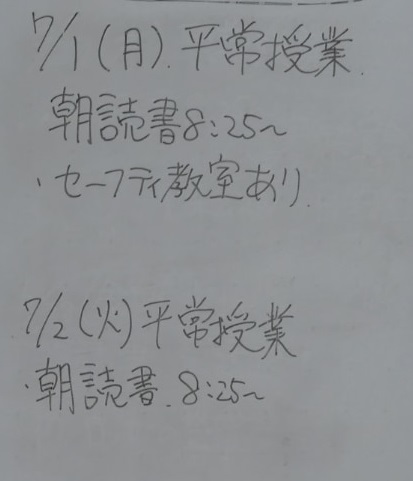 7/1(月).平常授業.
朝読書8:25~
・セーフティ教室あり.
7/2(火)平常授業
・朝読書.8:25~